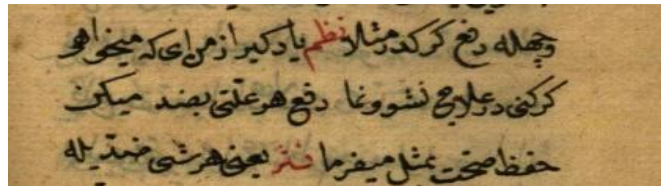 وچهله دفع کرکدر مثلا نظم یاد کیر از من ای که میخواهی
کرکنی در علاج نشوونما دفع هر علتی بضد میکن
حفظ صحت بمثل میفرما نثر یعنی هر شی ضدیله